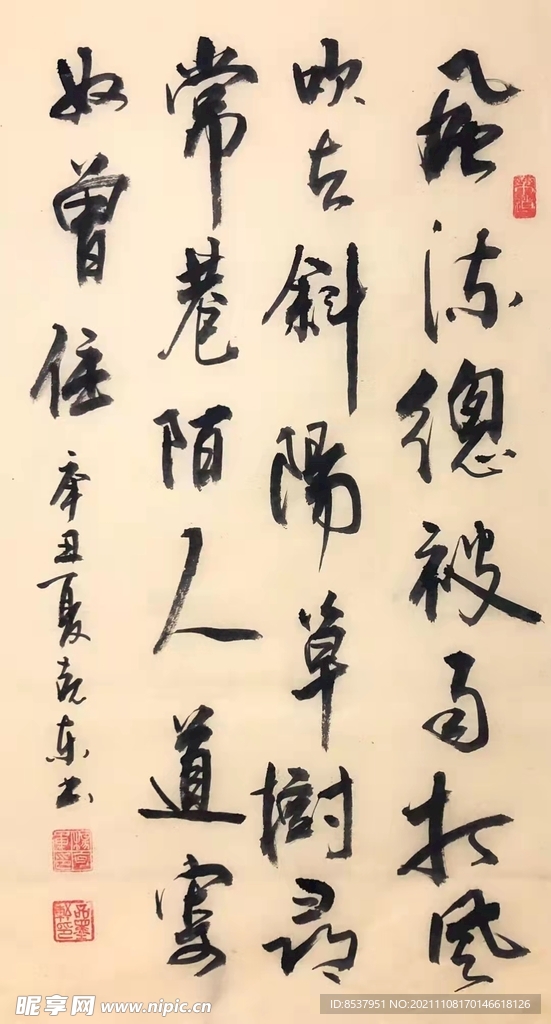 風流總被雨打風
吹去斜陽草樹尋
常巷陌人道寄
奴曾住
辛丑夏東書
昵享网 www.nipic.cn
ID:8537951 NO:20211108170146618126